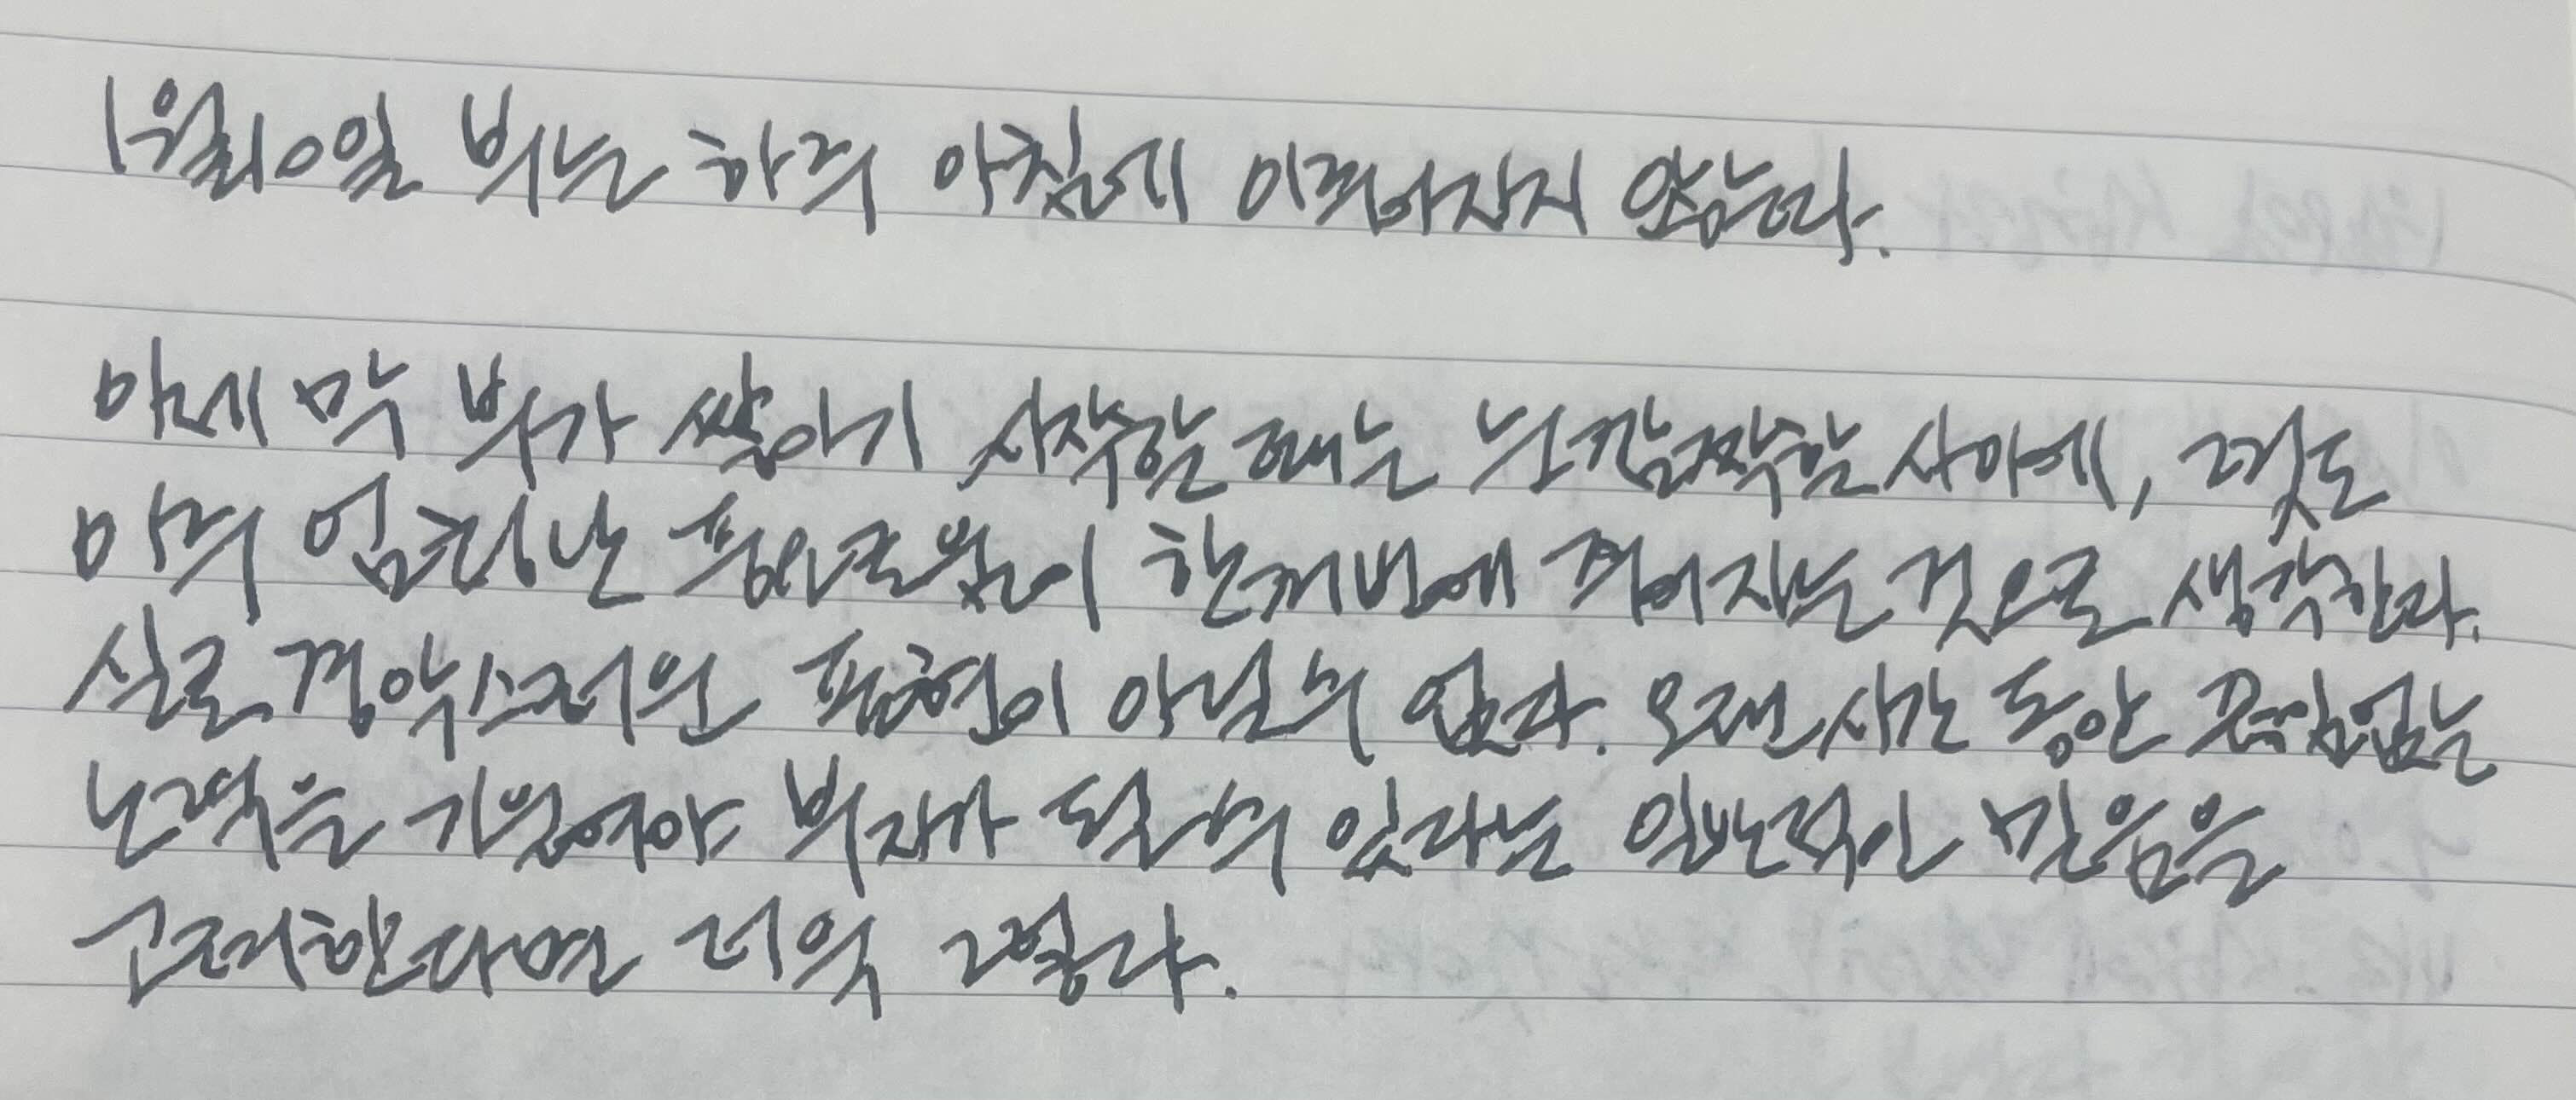 1월10일 부는 하루 아침에 이루어지지 않는다.
이제 막 부가 쌓이기 시작할 때는 눈 깜짝할 사이에, 그것도
아주 엄청난 풍요로움이 한꺼번에 주어지는 것으로 생각한다.
실로 경악스러운 표현이 아닐 수 없다. 오랜 시간 동안 끊임없는
노력을 기울여야 부자가 될 수 있다는 일반적인 믿음을
고려한다면 더욱 그렇다.